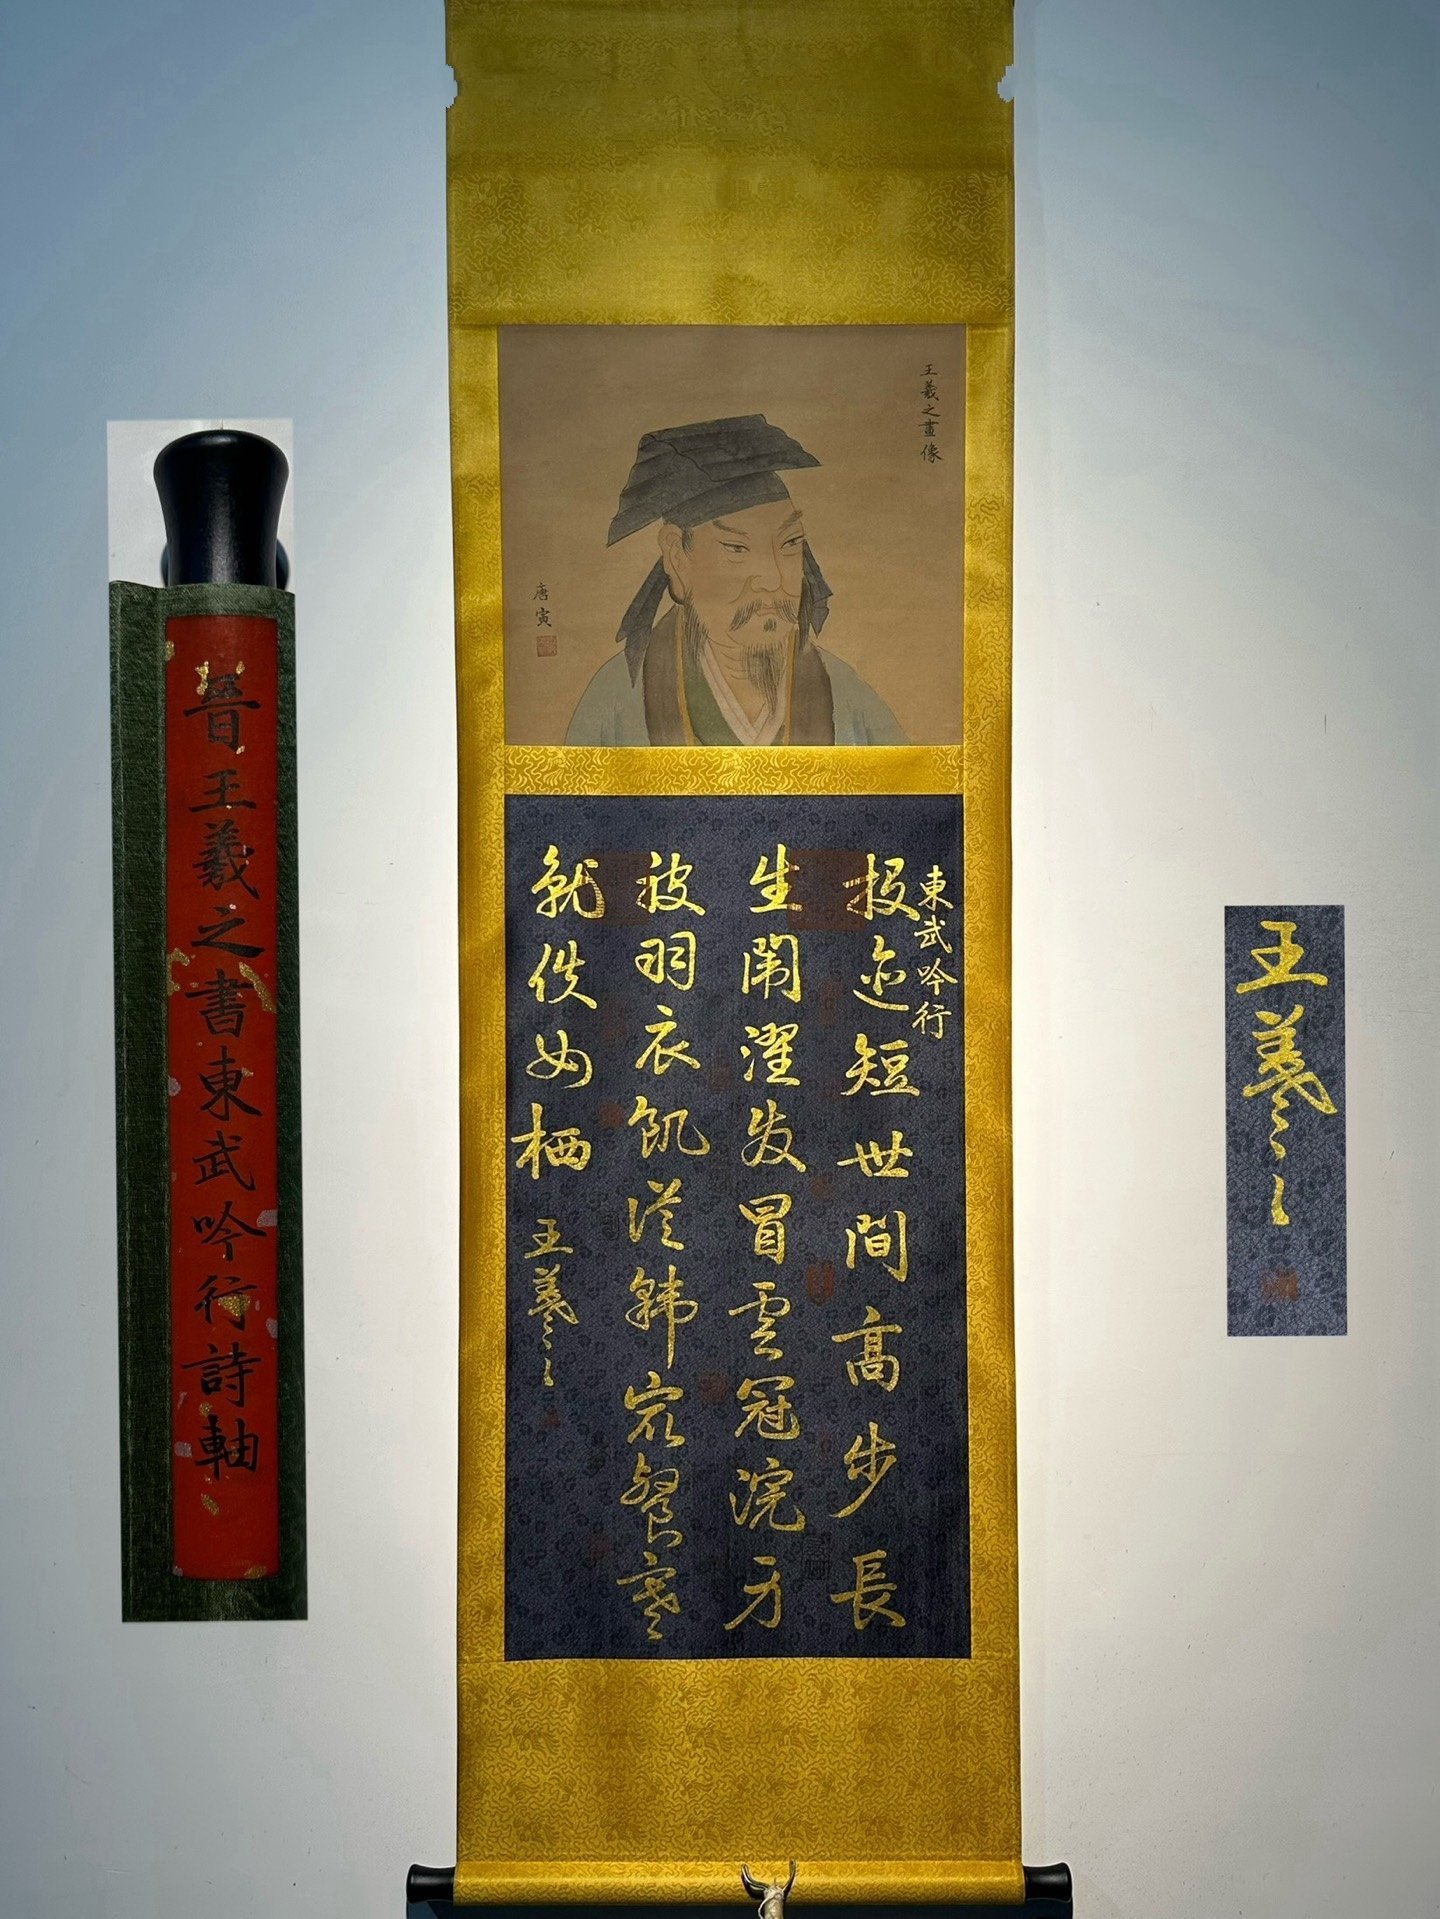 晉王羲之書東武吟行詩軸
王羲之畫像
唐寅
東武吟行
投迹短世間高步長
生闈濯发冒雲冠浣身
被羽衣飢從韓眾餐寒
就佚女栖
王羲之
王羲之